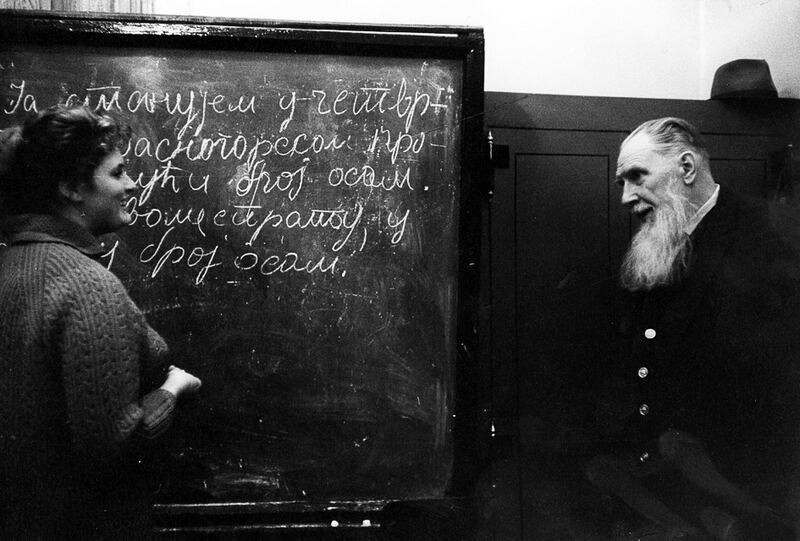 Ја станујем у четвр-
расногорском про-
ући број осам.
воме спрату, у
број осам.